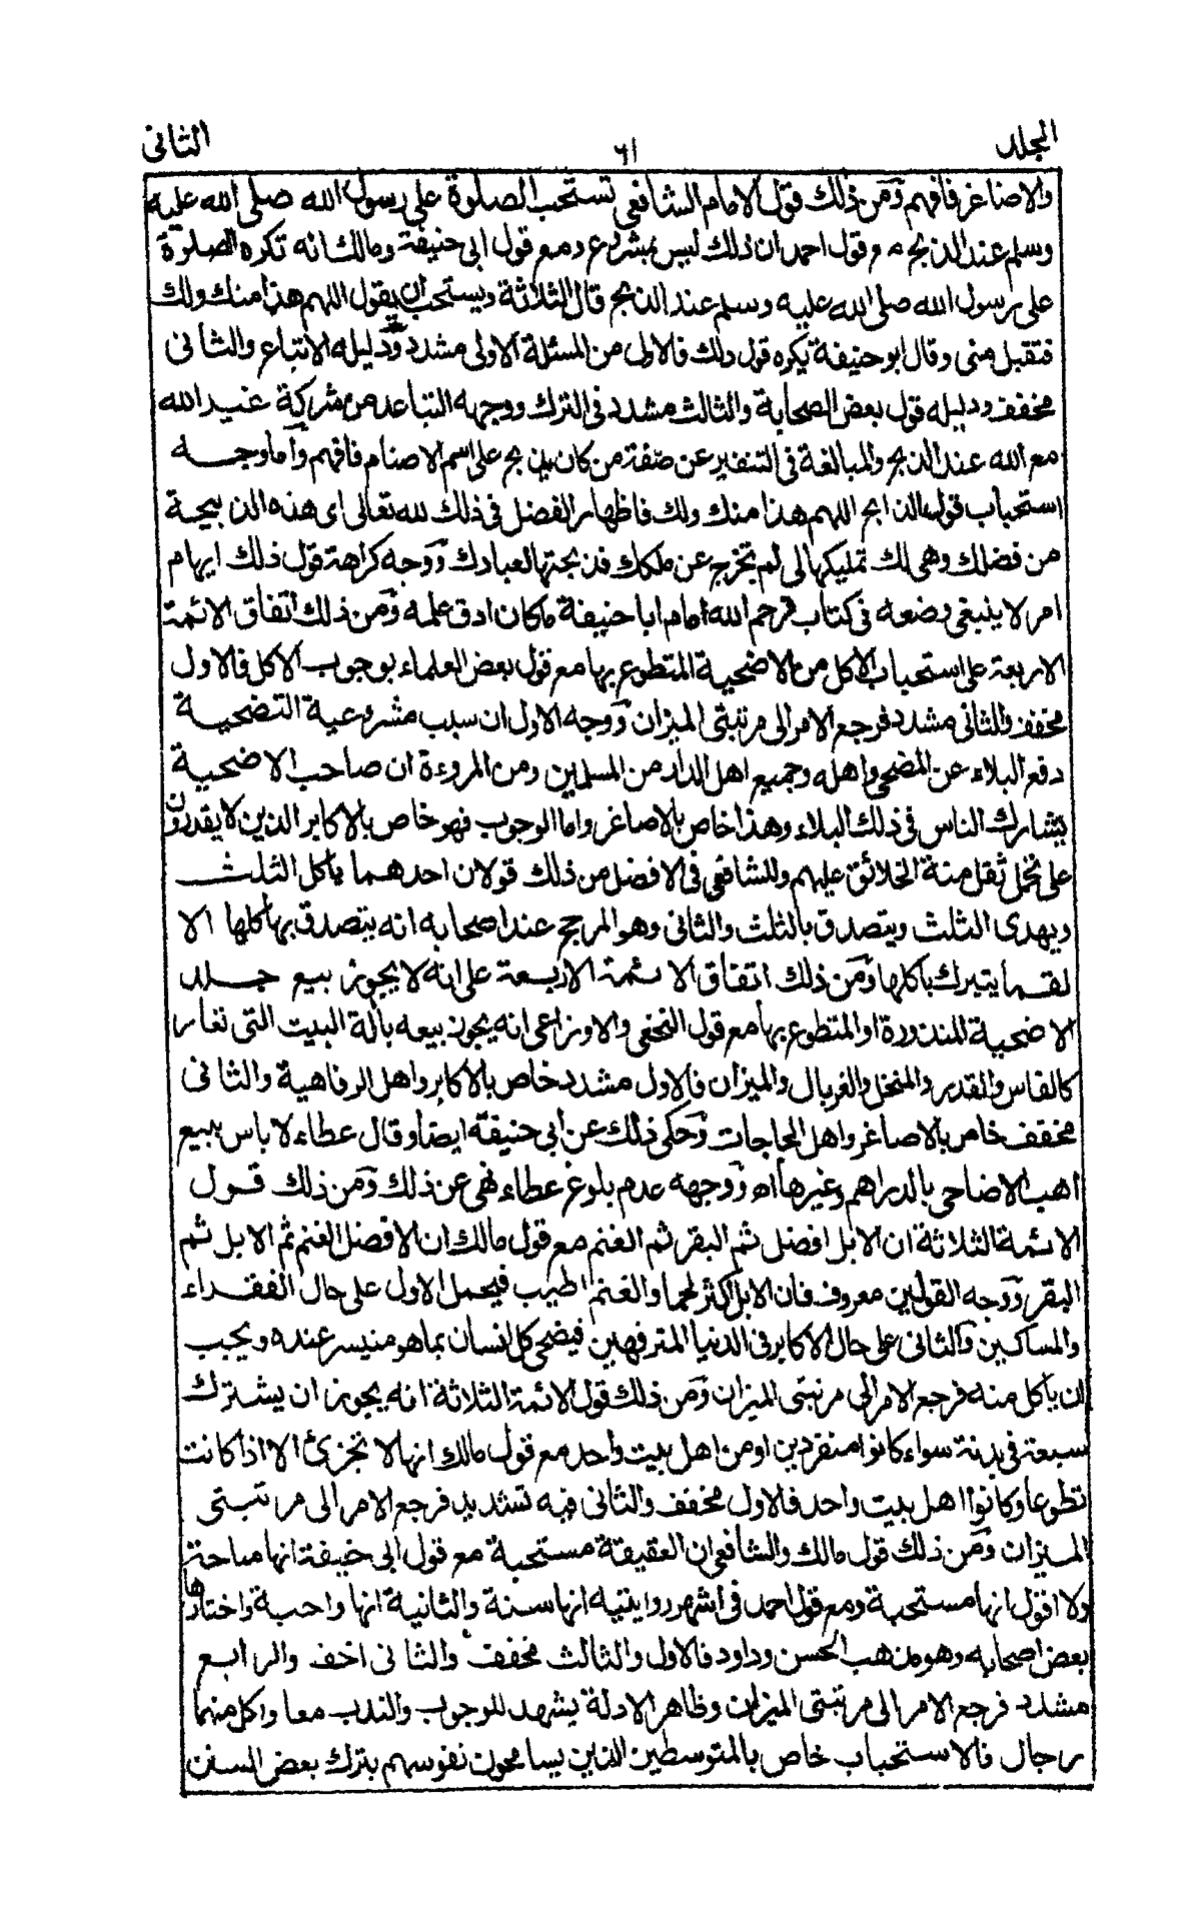 المجلد
٦١
الثانى
والاصاغر فافهم ومن ذلك قول الامام الشافعى تستحب الصلوة على رسول الله صلى الله عليه
وسلم عند الذبح مع قول احمد ان ذلك ليس بمشروع ومع قول ابى حنيفة ومالك انه تكره الصلوة
على رسول الله صلى الله عليه وسلم عند الذبح قال الثلاثة ويستحب ان يقول اللهم هذا منك ولك
فتقبل منى وقال ابو حنيفة يكره قول ذلك فالاول من المسئلة الاولى مشدد ودليله الاتباع والثانى
مخفف ودليله قول بعض الصحابة والثالث مشدد فى الترك ووجهه التباعد من مشركة غير الله
مع الله عند الذبح والمبالغة فى التنفير عن صفة من كان يذبح على اسم الاصنام فافهم واما وجه
استحباب قول الذابح اللهم هذا منك ولك فاظهار الفضل فى ذلك لله تعالى اى هذه الذبيحة
من فضلك وهى لك تمليكها لى لم تخرج عن ملكك فذبحتها لعبادك ووجه كراهة قول ذلك ايهام
امر لا ينبغى وضعه فى كتاب فرحم الله امام ابا حنيفة ما كان ادق علمه ومن ذلك اتفاق الائمة
الاربعة على استحباب الاكل من الاضحية المتطوع بها مع قول بعض العلماء بوجوب الاكل فالاول
مخفف والثانى مشدد فرجع الامر الى مرتبتى الميزان ووجه الاول ان سبب مشروعية التضحية
دفع البلاء عن المضحى واهله وجميع اهل الدار من المسلمين ومن المروءة ان صاحب الاضحية
يشارك الناس فى ذلك البلاء وهذا خاص بالاصاغر واما الوجوب فهو خاص بالاكابر الذين لا يقدرون
على تحمل ثقل منة الخلائق عليهم وللشافعى فى الافضل من ذلك قولان احدهما ياكل الثلث
ويهدى الثلث ويتصدق بالثلث والثانى وهو المرجح عند اصحابه انه يتصدق بها كلها الا
لقما يتبرك باكلها ومن ذلك اتفاق الائمة الاربعة على انه لا يجوز بيع جلد
الاضحية المنذورة او المتطوع بها مع قول النخعى والاوزاعى انه يجوز بيعه بآلة البيت التى تعار
كالفاس والقدر والمنخل والغربال والميزان فالاول مشدد خاص بالاكابر واهل الرفاهية والثانى
مخفف خاص بالاصاغر واهل الحاجات وحكى ذلك عن ابى حنيفة ايضا وقال عطاء لا باس ببيع
اهب الاضاحى بالدراهم وغيرها اه ووجهه عدم بلوغ عطاء نهى عن ذلك ومن ذلك قول
الائمة الثلاثة ان الابل افضل ثم البقر ثم الغنم مع قول مالك ان الافضل الغنم ثم الابل ثم
البقر ووجه القولين معروف فان الابل اكثر لحما والغنم اطيب فيحمل الاول على حال الفقراء
والمساكين والثانى على حال الاكابر فى الدنيا المترفهين فيضحى كل انسان بما هو متيسر عنده ويحب
ان ياكل منه فرجع الامر الى مرتبتى الميزان ومن ذلك قول الائمة الثلاثة انه يجوز ان يشترك
سبعة فى بدنة سواء كانوا منفردين او من اهل بيت واحد مع قول مالك انها لا تجزئ الا اذا كانت
تطوعا وكانوا اهل بيت واحد فالاول مخفف والثانى فيه تشديد فرجع الامر الى مرتبتى
الميزان ومن ذلك قول مالك والشافعى ان العقيقة مستحبة مع قول ابى حنيفة انها مباحة
ولا اقول انها مستحبة ومع قول احمد فى اشهر روايتيه انها سنة والثانية انها واجبة واختارها
بعض اصحابه وهو مذهب الحسن وداود فالاول والثالث مخفف والثانى اخف والرابع
مشدد فرجع الامر الى مرتبتى الميزان وظاهر الادلة يشهد للوجوب والندب معا ولكل منهما
رجال فالاستحباب خاص بالمتوسطين الذين يسامحون نفوسهم بترك بعض السنن